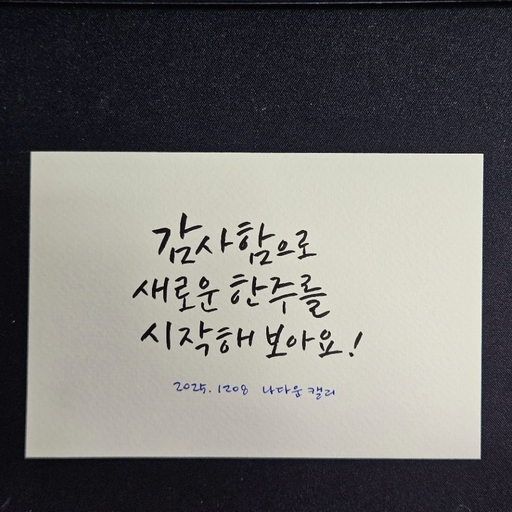 감사함으로
새로운 한주를
시작해 보아요!
2025. 1208 나다움 캘리